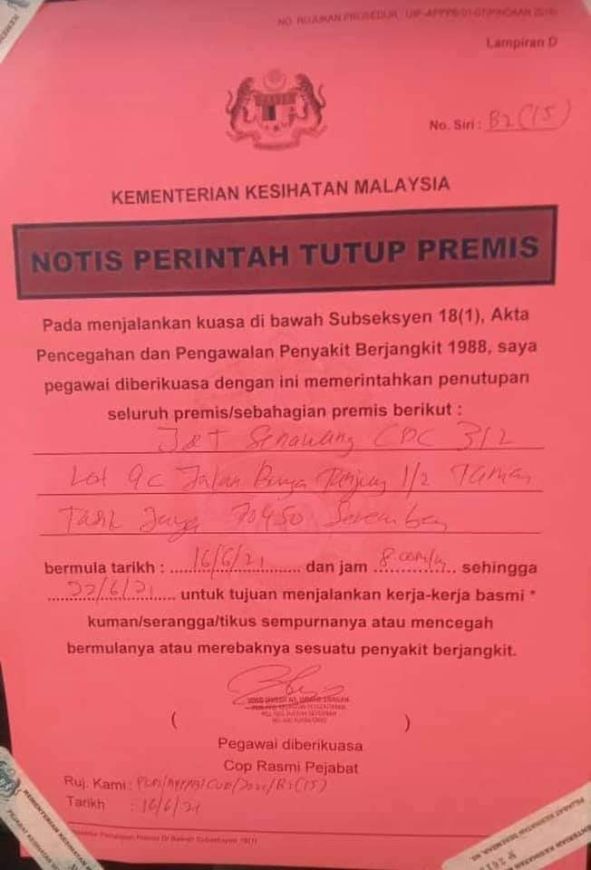 NO. RUJUKAN PROSEDUR
Lampiran D
No. Siri : B2(15)
KEMENTERIAN KESIHATAN MALAYSIA
NOTIS PERINTAH TUTUP PREMIS
Pada menjalankan kuasa di bawah Subseksyen 18(1), Akta
Pencegahan dan Pengawalan Penyakit Berjangkit 1988, saya
pegawai diberikuasa dengan ini memerintahkan penutupan
seluruh premis/sebahagian premis berikut :
J&T Senawang CDC 312
Lot 9C Jalan Bunga Tanjung 1/2 Taman
Tasik Jaya 70450 Seremban
bermula tarikh : 16/6/21 dan jam 8.00 sehingga
22/6/21 untuk tujuan menjalankan kerja-kerja basmi *
kuman/serangga/tikus sempurnanya atau mencegah
bermulanya atau merebaknya sesuatu penyakit berjangkit.
( )
Pegawai diberikuasa
Cop Rasmi Pejabat
Ruj. Kami :
Tarikh : 16/6/21
Di Bawah Subseksyen 18(1)